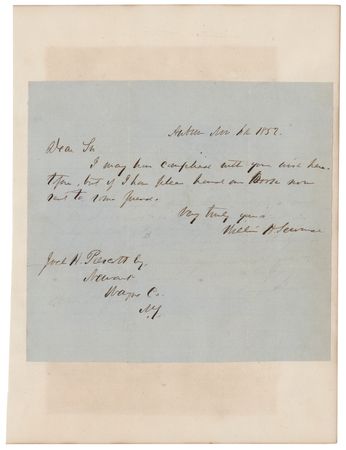 Auburn Nov 1852.
Dear Sir
I may have complied with your wish here-
tofore, but if I have please hand one now
sent to some friend.
Very truly yours
William H Seward
Joel H. Prescott Esq
Newark
Wayne Co.
N.Y.